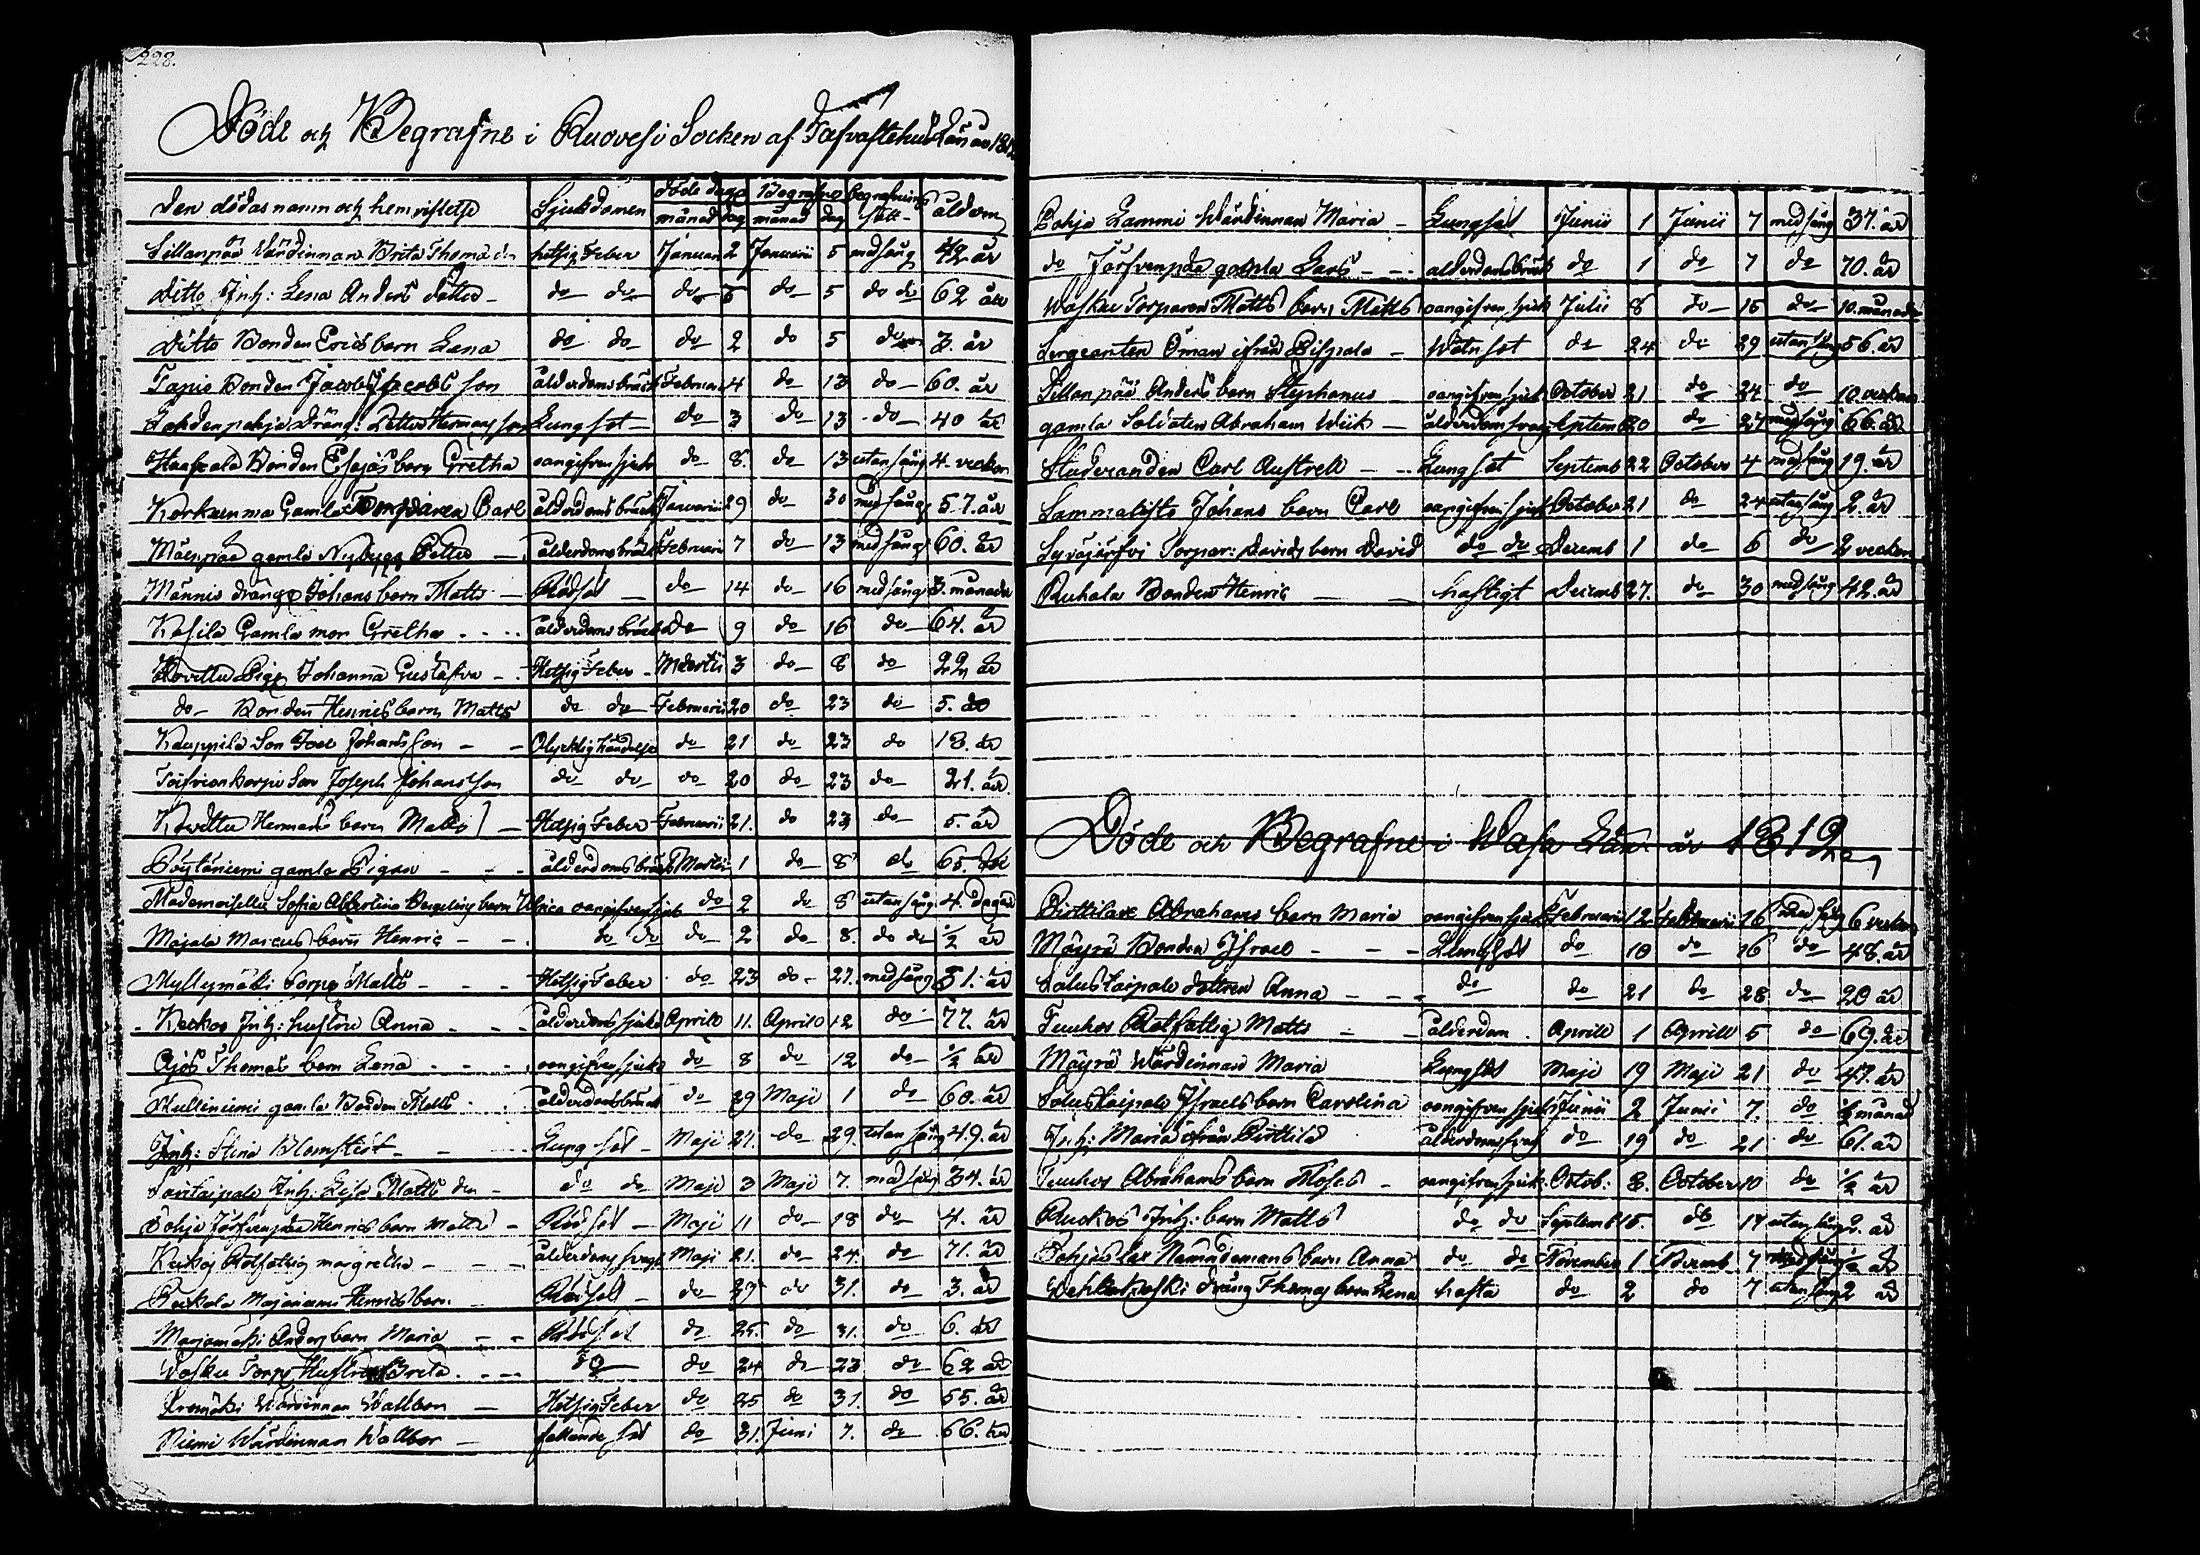 228.
Döde och Begrafne i Ruovesi Socken af Tafvastehus Län år 1812
den dödas namn och hemvistelse Sjukdomen Döde dag Begrafne begrafnings åldom
månad dag månad dag sätt
Sillanpää Värdinnan Brita Thomæ dr hetsig Feber Januari 2 Januarii 5 med sång 42 år
Ditto Inh: Lena Anders dotter do do do 5 do 5 do do 62 år
Ditto Bonden Erics barn Lena do do do 2 do 5 do 3. år
Tapio Bonden Jacob Jacobs son ålderdoms bräck Februarii 4 do 13 do 60. år
Lahdenpohja Dräng: Petter Hermans son Lungsot do 3 do 13 do 40 år
Bonden Esajas barn Gretha oangifven sjuk do 8. do 13 utan sång 4. veckor
Korkeenma Gamla Carl ålderdoms bräck Januarii 29 do 30 med sång 57. år
Mäenpää gamla Nybygg Petter ålderdoms bräck Februari 7 do 13 med sång 60. år
Männis drängs Johans barn Matts Rödsot do 14 do 16 med sång 3. månader
Kasila Gamla mor Gretha ålderdoms bräck do 9 do 16 do 64. år
Pige Johanna Gustafva Hetsig Feber Martii 3 do 8 do 22 år
do Bonden Henrics barn Matts do do Februarii 20 do 23 do 5. do
Kauppila Son Joel Johansson Olycklig händelse do 21 do 23 do 13. år
Son Joseph Johansson do do do 20 do 23 do 21. år
Hermans barn Matts Hetsig Feber Februarii 21. do 23 do 5. år
Pöytäniemi gamla Pigan ålderdoms bräck Martii 1 do 8 do 65. år
Mademoiselle Sofia Albertina barn Ulrica oangifven sjuk do 2 do 8 utan sång 4. dagar
Majala Marcus barn Henric do do do 2 do 8. do do ½ år
Myllymäki Torp: Matts Hetsig Feber do 23 do 27. med sång 51. år
Keckos Inh: hustru Anna ålderdoms sjukd Aprill 11. Aprill 12 do 77. år
Ajos Thomas barn Lena oangifven sjukd do 8 do 12 do ½ år
gamla Bonden Matts ålderdoms bräck do 29 Maji 1 do 60. år
Inh: Stina Blomqvist Lungsot Maji 27. do 29. utan sång 49. år
Inh: Lisa Matts dr do do Maji 3 Maji 7. med sång 34. år
Pohja Järfvenpää Henrics barn Matts Rödsot Maji 11 do 18 do 4. år
Rotfattig margretha ålderdoms svagh Maji 21. do 24. do 71. år
Henrics barn Rödsot do 29 do 31. do 3. år
Marjamäki Anders barn Maria Rödsot do 25. do 31. do 6. år
Waska Torp: Hustru Greta do do 24 do 23 do 62 år
Wärdinnan Wallbor Hetsig Feber do 25 do 31. do 55. år
Niemi Wärdinnan Wallbor fallande sot do 31. Juni 7. do 66. år
Pohja Lammi Wärdinnan Maria Lungsot Junii 1 Junii 7 med sång 37. år
do Järfvenpää gamla Lars ålderdoms bräck do 1 do 7 do 70. år
Waska Torparen Matts barn Matts oangifven sjuk Julii 8 do 15 do 10. månader
Sergeanten Öman ifrån Pihpala Watnsot do 24 do 29 utan sång 56. år
Sillanpää Anders barn Stephanus oangifven sjuk October 21 do 24 do 10 veckor
gamla Soldaten Abraham Wiik ålderdoms svag Septemb 20 do 27 med sång 66. år
Studeranden Carl Austrell Lungsot Septemb 22 October 4 med sång 19. år
Sammalisto Johans barn Carl oangifven sjuk October 21 do 24 utan sång 2. år
Syväjärfvi Torpar: Davids barn David do do Decemb 1 do 6 do 2 veckor
Ruhala Bonden Henric hastigt Decemb 27. do 30 med sång 42. år
Döde och Begrafne i Wasa Län år 1812
Pirttilax Abrahams barn Maria oangifven sjuk Februarii 12 Februarii 16 med sång 6 veckor
Mäyrä Bonden Israel Lungsot do 10 do 16 do 48. år
Salus Taipale dottren Anna do do 21 do 28 do 20 år
Teuhos Rotfattig Matts ålderdom Aprill 1 Aprill 5 do 69. år
Mäyrä Wärdinnan Maria Lungsot Maji 19 Maji 21 do 47. år
Salus Taipale Israels barn Carolina oangifven sjuk Junii 2 Junii 7. do ½ månad
Inh: Maria ifrån Pirttilä ålderdoms svag do 19 do 21 do 61. år
Teuhos Abrahams barn Moses oangifven sjuk Octob: 8. October 10 do ½ år
Ruckos Inh: barn Matts do do Septemb 15. do 17 utan sång 2. år
Pohjus lax Nämndemans barn Anna do do November 1 Decemb 7 med sång ½ år
dräng Thomas barn Lena hosta do 2 do 7 utan sång 2 år